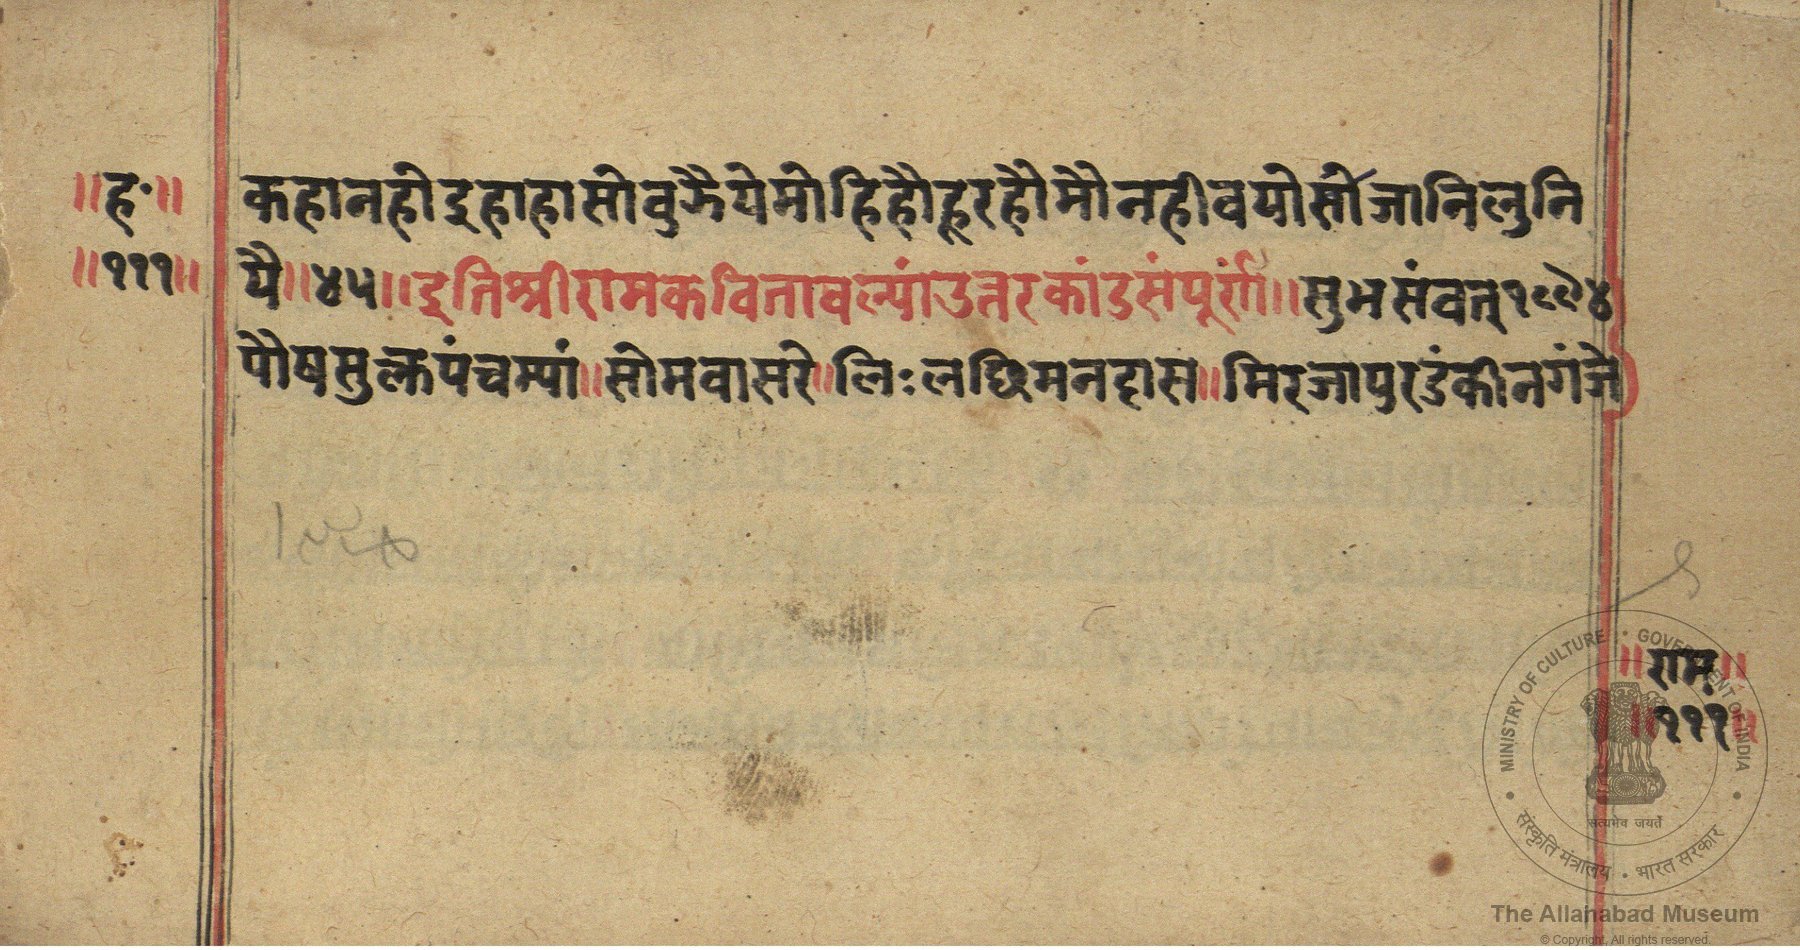 ॥ह॰॥ कहानहोइहाहासोवुझैयेमोहिहौहूरहौमौनहीवयोसोजानिलुनि
॥१११॥ यै॥४५॥इतिश्रीरामकवितावल्यांउत्तरकांडसंपूर्ण॥सुभसंवत्१८९४
पौषसुक्लपंचम्यां॥सोमवासरे॥लिःलछिमनदास॥मिरजापुरडंकीनगंजे
॥राम॥
॥१११॥
MINISTRY OF CULTURE • GOVERNMENT OF INDIA
सत्यमेव जयते
संस्कृति मंत्रालय • भारत सरकार
The Allahabad Museum
© Copyright, All rights reserved.